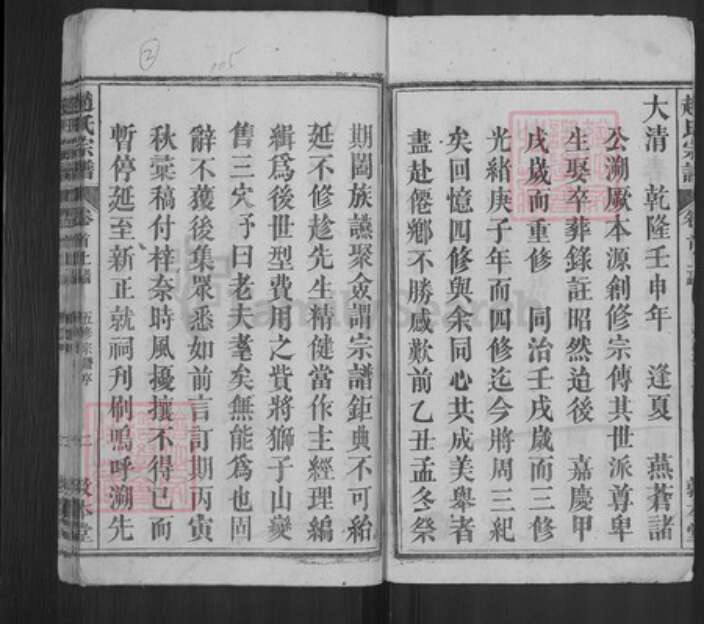 大清　乾隆壬申年　逢夏　燕蒼諸
公溯厥本源創修宗傳其世派尊卑
生娶卒葬錄註昭然迨後　嘉慶甲
戌歲而重修　同治壬戌歲而三修
光緒庚子年而四修迄今將周三紀
矣回憶四修與余同心共成美舉者
盡赴僊鄉不勝感歎前乙丑孟冬祭
期闔族讌聚僉謂宗譜鉅典不可紿
延不修趁先生精健當作主經理編
緝爲後世型費用之貲將獅子山變
售三穴予曰老夫耄矣無能爲也固
辭不獲後集眾悉如前言訂期丙寅
秋稾稿付梓奈時風擾攘不得已而
暫停延至新正就祠刋刷嗚呼溯先
趙氏宗譜
卷首上
五修宗譜序
二
敦本堂
FamilySearch
2